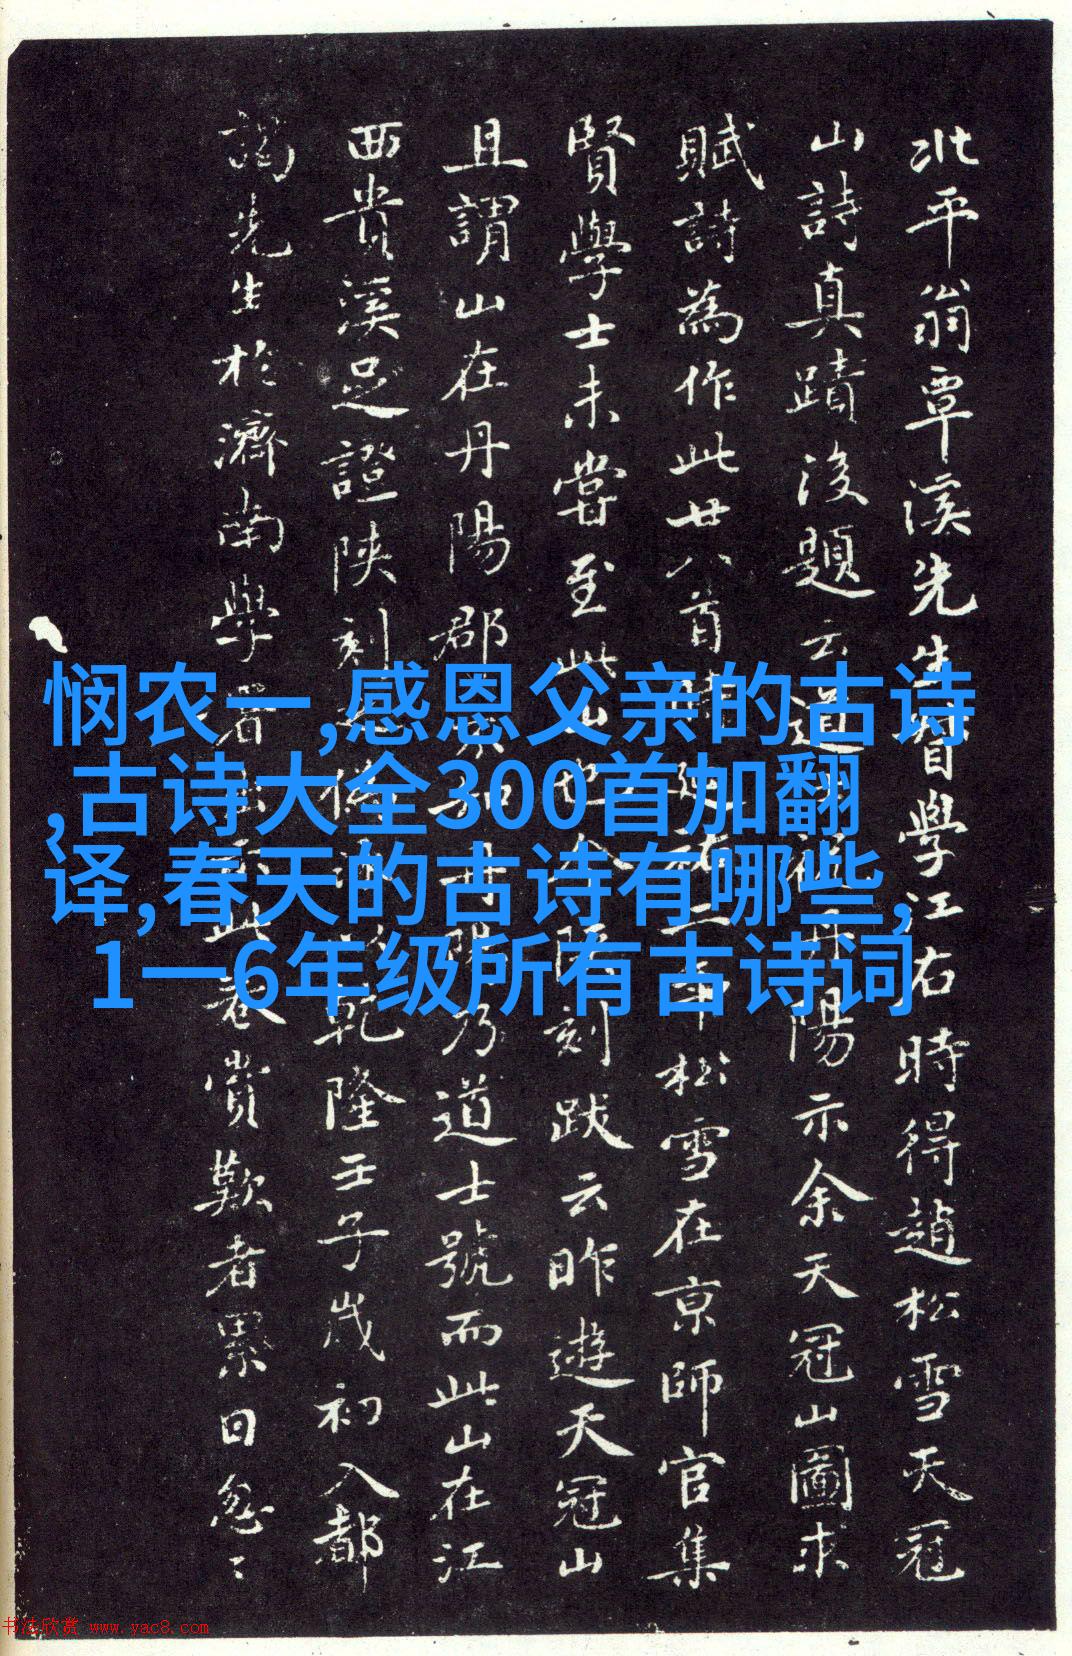 北平翁覃溪先生督學江右時得趙松雪天冠
山詩真蹟後題云道士祖丹陽示余天冠山圖求
賦詩為作此廿八首
延祐二年松雪在京師官集
賢學士未嘗至此山也今陝刻跋云昨遊天冠山
且謂山在丹陽郡
乃道士號而此山在江
西貴溪足證陝刻
乾隆壬子歲初入都
謁先生於濟南學
此卷賞歎者累日忽〻
悯农一,感恩父亲的古诗
,古诗大全300首加翻
译,春天的古诗有哪些,
1一6年级所有古诗词
书法欣赏 www.yac8.com